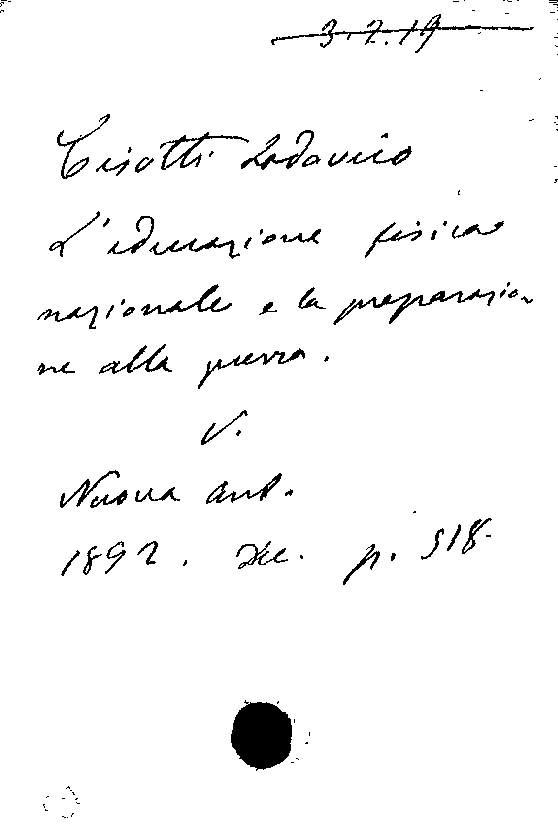 3.2.19
Cisotti Lodovico
L'educazione fisica
nazionale e la preparazio-
ne alla guerra.
V.
Nuova Ant.
1892. Dic. p. 518